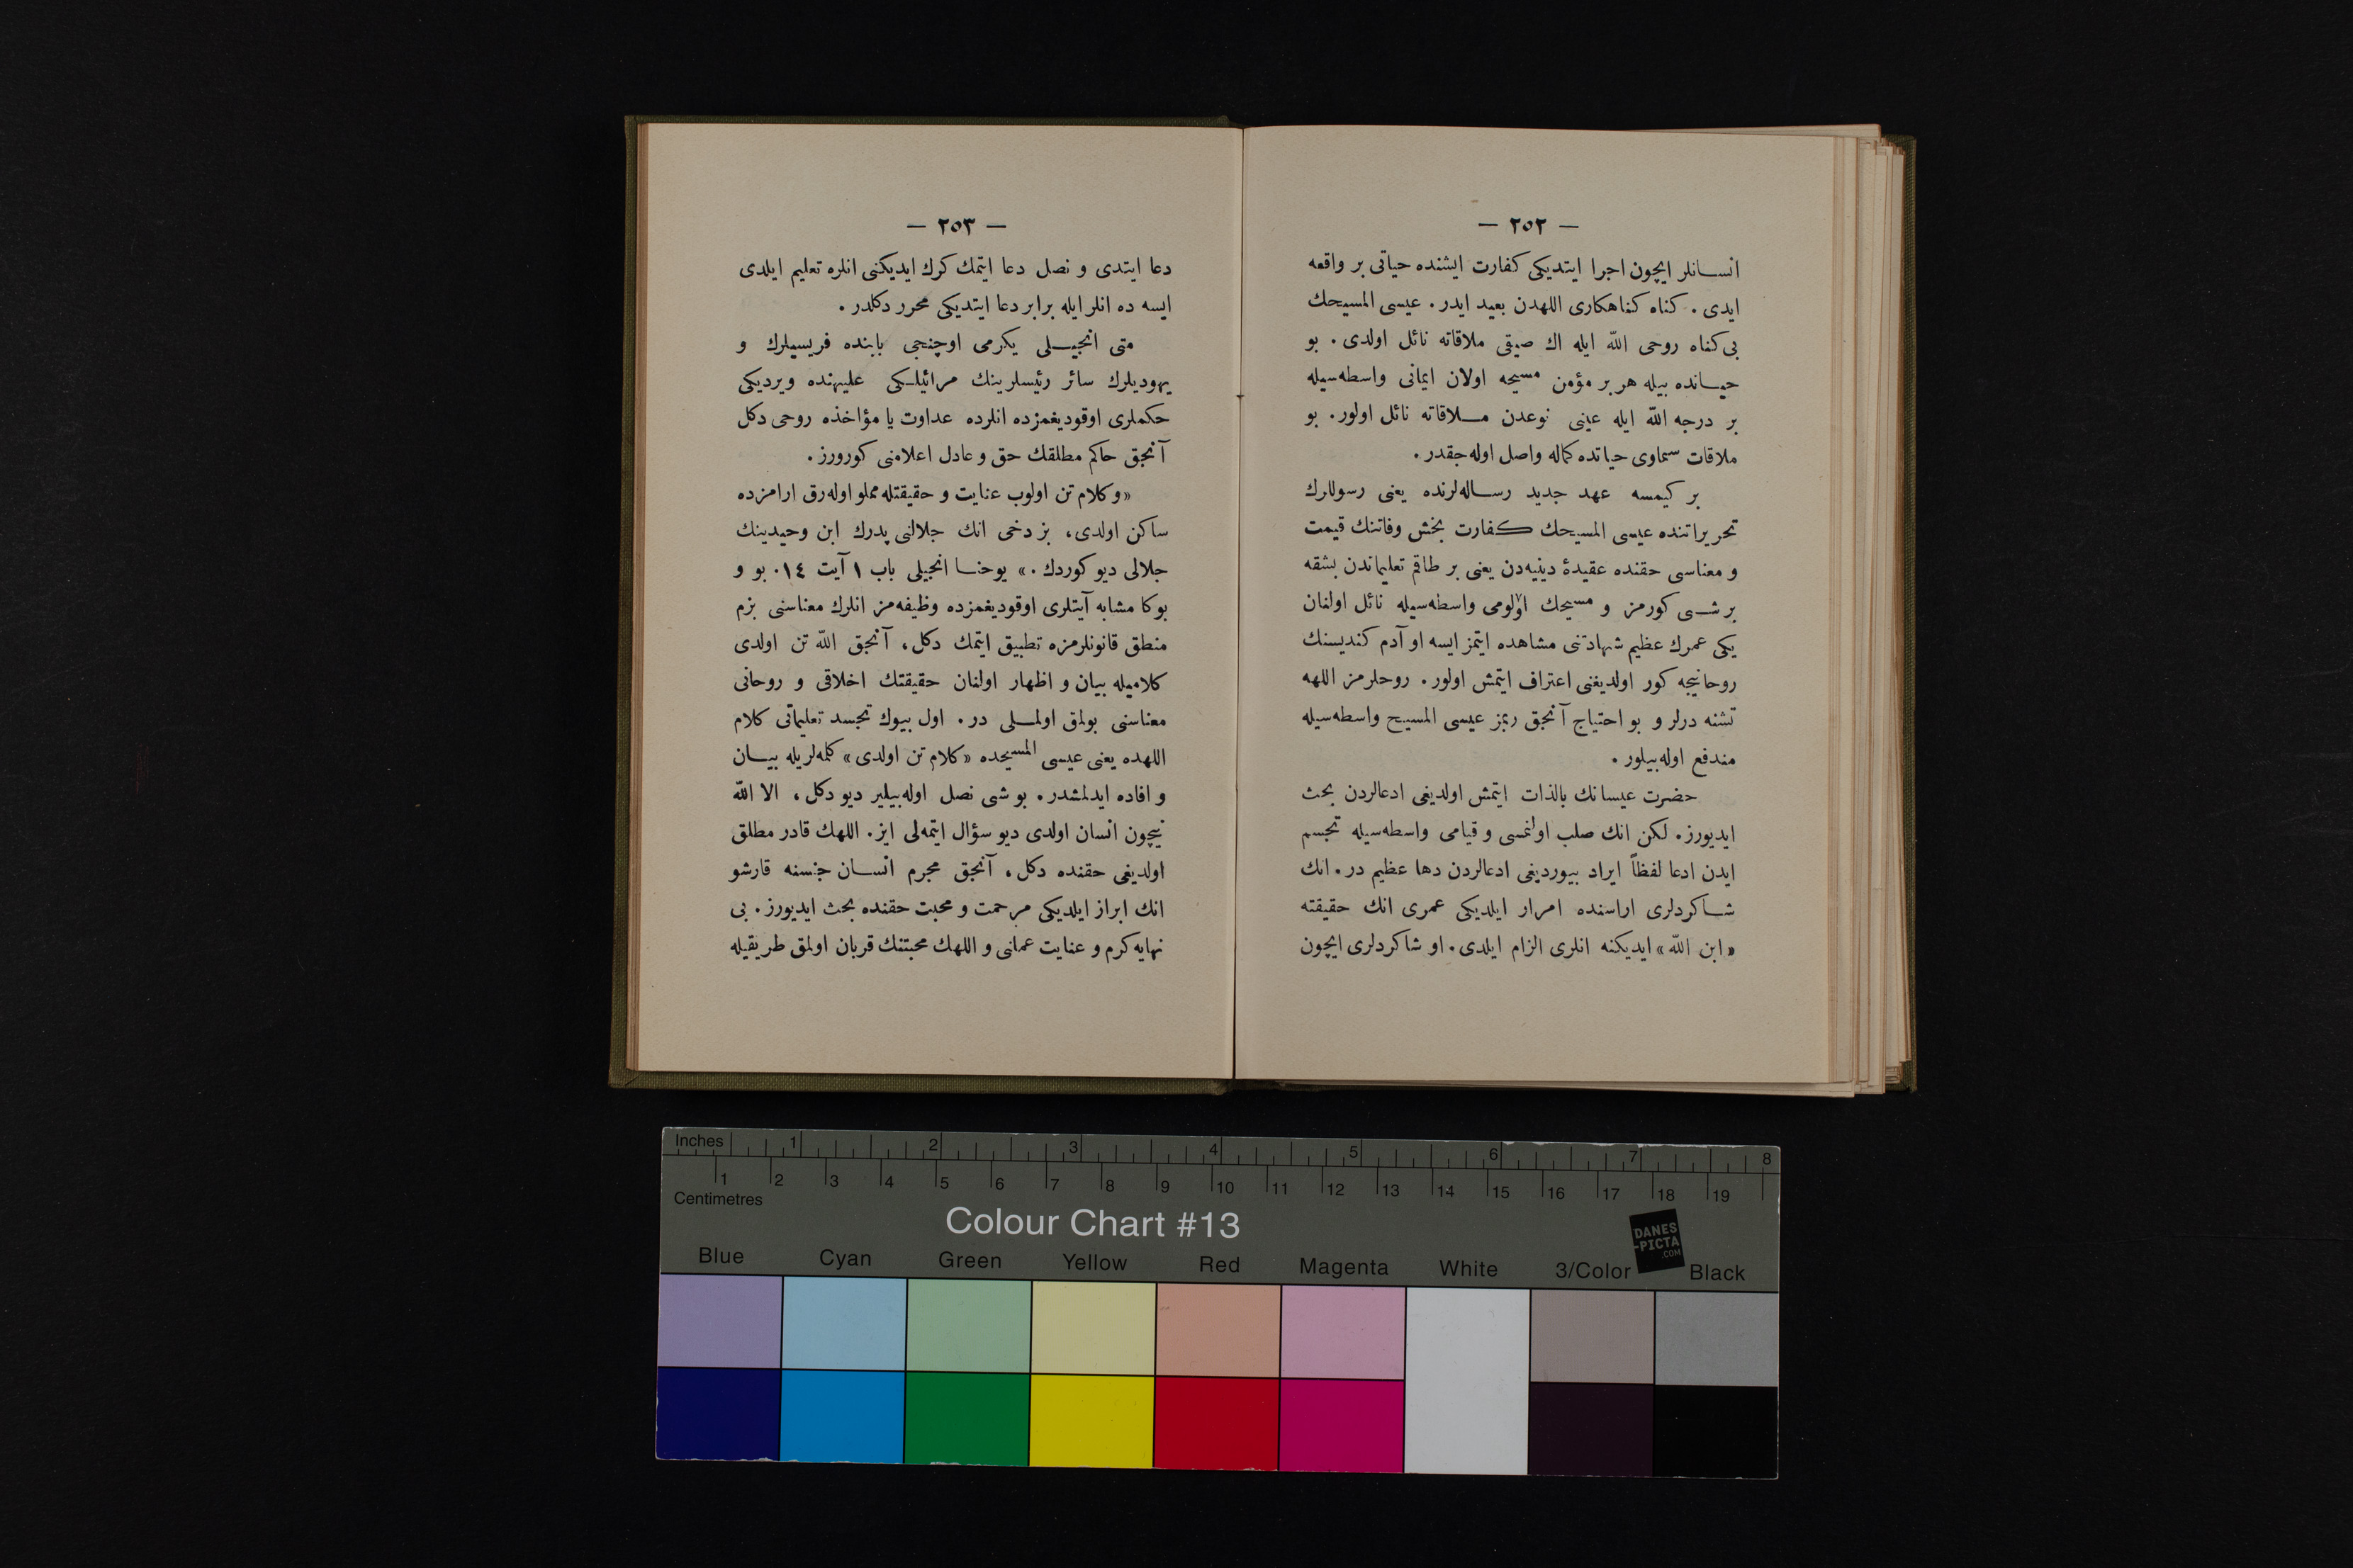 — ٢٥٢ —
انسانلر ایچون اجرا ایتدیکی کفارت ایشنده حیاتی بر واقعه
ایدی . کناه کناهکاری اللهدن بعید ایدر . عیسی المسیحك
بی کناه روحی اللّٰه ایله اك صیقی ملاقاته نائل اولدی . بو
حیاتده بیله هر بر مؤمن مسیحه اولان ایمانی واسطه‌سیله
بر درجه اللّٰه ایله عینی نوعدن ملاقاته نائل اولور . بو
ملاقات سماوی حیاتده کماله واصل اوله‌جقدر .
بر کیمسه عهد جدید رساله‌لرنده یعنی رسوللرك
تحریراتنده عیسی المسیحك کفارت بخش وفاتنك قیمت
و معناسی حقنده عقیدۀ دینیه‌دن یعنی بر طاقم تعلیماتدن بشقه
بر شی کورمز و مسیحك اولومی واسطه‌سیله نائل اولنان
یکی عمرك عظیم شهادتنی مشاهده ایتمز ایسه او آدم کندیسنك
روحانیجه کور اولدیغنی اعتراف ایتمش اولور . روحلرمز اللهه
تشنه درلر و بو احتیاج آنجق ربمز عیسی المسیح واسطه‌سیله
مندفع اوله‌بیلور .
حضرت عیسانك بالذات ایتمش اولدیغی ادعالردن بحث
ایدیورز . لکن انك صلب اولنمسی و قیامی واسطه‌سیله تجسم
ایدن ادعا لفظاً ایراد بیوردیغی ادعالردن دها عظیم در . انك
شاکردلری اراسنده امرار ایلدیکی عمری انك حقیقته
«ابن اللّٰه» ایدیکنه انلری الزام ایلدی . او شاکردلری ایچون
— ٢٥٣ —
دعا ایتدی و نصل دعا ایتمك کرك ایدیکنی انلره تعلیم ایلدی
ایسه ده انلر ایله برابر دعا ایتدیکی محرر دکلدر .
متی انجیلی یکرمی اوچنجی بابنده فریسیلرك و
یهودیلرك سائر رئیسلرینك مرائیلکی علیهنده ویردیکی
حکملری اوقودیغمزده انلرده عداوت یا مؤاخذه روحی دکل
آنجق حاکم مطلقك حق و عادل اعلامنی کورورز .
«و کلام تن اولوب عنایت و حقیقتله مملو اوله‌رق ارامزده
ساکن اولدی، بز دخی انك جلالنی پدرك ابن وحیدینك
جلالی دیو کوردك .» یوحنا انجیلی باب ١ آیت ١٤ . بو و
بوکا مشابه آیتلری اوقودیغمزده وظیفه‌مز انلرك معناسنی بزم
منطق قانونلرمزه تطبیق ایتمك دکل، آنجق اللّٰه تن اولدی
کلامیله بیان و اظهار اولنان حقیقتك اخلاقی و روحانی
معناسنی بولمق اولملی در . اول بیوك تجسد تعلیماتی کلام
اللهده یعنی عیسی المسیحده «کلام تن اولدی» کلمه‌لریله بیان
و افاده ایدلمشدر . بو شی نصل اوله‌بیلیر دیو دکل، الا اللّٰه
نیچون انسان اولدی دیو سؤال ایتمه‌لی ایز . اللهك قادر مطلق
اولدیغی حقنده دکل، آنجق مجرم انسان جنسنه قارشو
انك ابراز ایلدیکی مرحمت و محبت حقنده بحث ایدیورز . بی
نهایه کرم و عنایت عمانی و اللهك محبتنك قربان اولمق طریقیله
Inches 1 2 3 4 5 6 7 8
1 2 3 4 5 6 7 8 9 10 11 12 13 14 15 16 17 18 19
Centimetres
Colour Chart #13
DANES
-PICTA
.COM
Blue Cyan Green Yellow Red Magenta White 3/Color Black